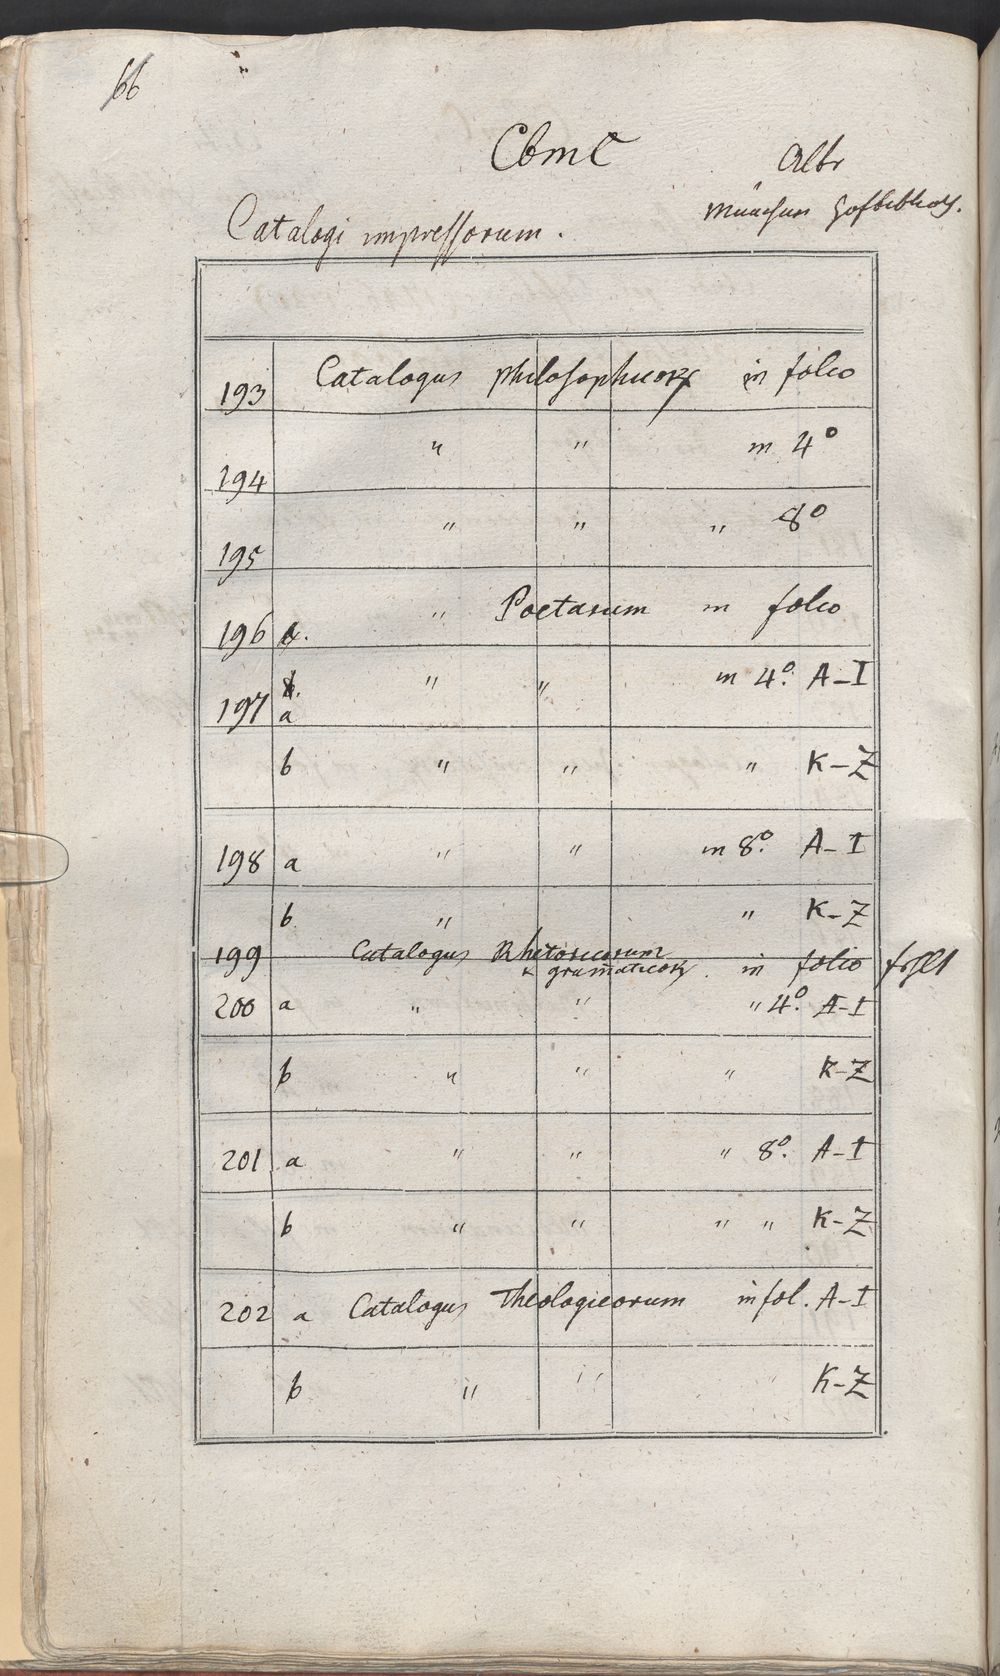 66
Cbm C
Albr
München Hofbiblioth.
Catalogi impressorum.
193 Catalogus philosophicorꝝ in folio
194 " " in 4°
195 " " " 8°
196 " Poetarum in folio
197 a " " in 4°. A-I
b " " " K-Z
198 a " " in 8°. A-I
b " " K-Z
199 Catalogus Rhetoricorum
& gram̄aticorꝝ. in folio fehlt
200 a " " " 4°. A-I
b " " " K-Z
201 a " " " 8°. A-I
b " " " " K-Z
202 a Catalogus Theologicorum in fol. A-I
b " " K-Z